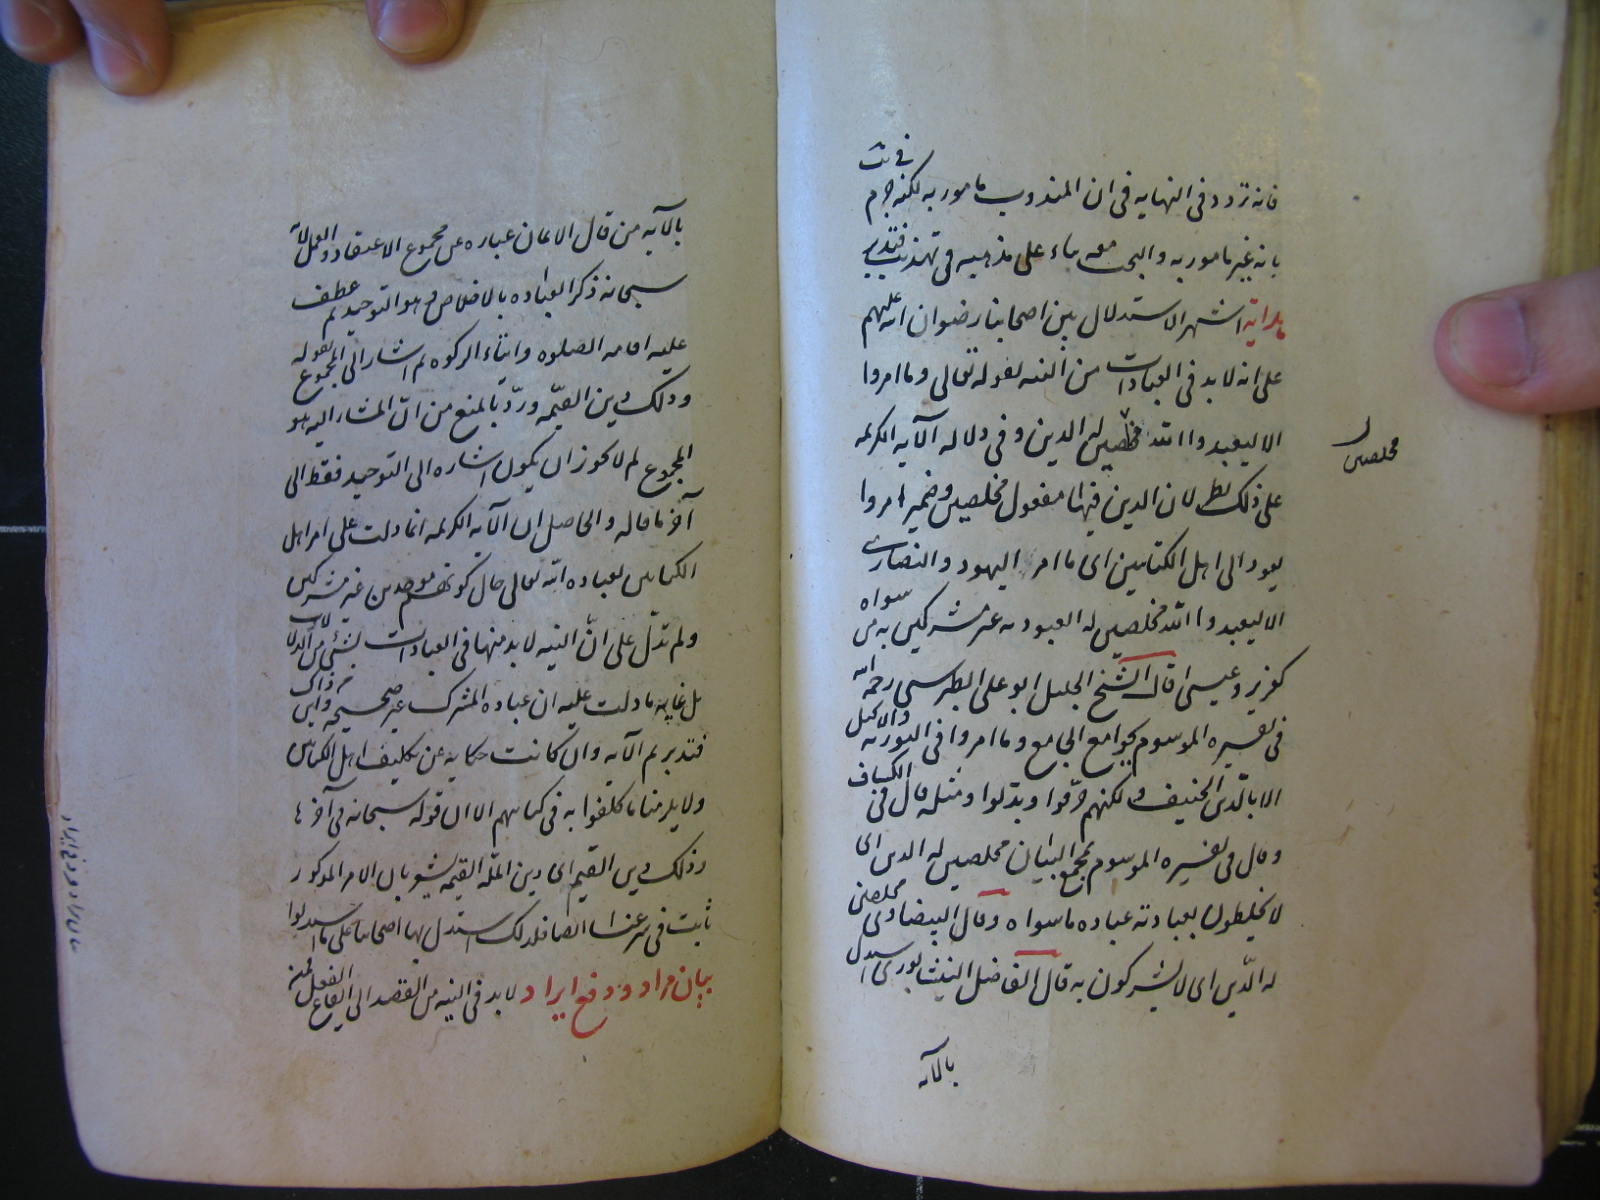 فانه تردد فى النهايه فى ان المندوب مامور به لكنه جزم فى يب
بانه غير مامور به والبحث معه بناء على مذهبه فى تهذيب فتدبر
هداية اشتهر الاستدلال بين اصحابنا رضوان الله عليهم
على انه لابد فى العبادات من النيه بقوله تعالى وما امروا
الا ليعبدوا الله مخلصين له الدين وفى دلاله الآيه الكريمه
مخلصين
على ذلك نظر لان الدين فيها مفعول مخلصين وضمير امروا
يعود الى اهل الكتابين اى ما امر اليهود والنصارى
الا ليعبدوا الله مخلصين له العبوديه غير مشركين به من سواه
كعزير وعيسى قال الشيخ الجليل ابو على الطبرسى رحمه الله
فى تفسيره الموسوم بجوامع الجامع وما امروا فى التوريه والانجيل
الا بالدين الحنيف ولكنهم حرّفوا وبدّلوا ومثله قال فى الكشاف
وقال فى تفسيره الموسوم بمجمع البيان مخلصين له الدين اى
لا يخلطون بعبادته عباده ما سواه وقال البيضاوى مخلصين
له الدّين اى لا يشركون به قال الفاضل النيشابورى استدل
بالآيه
بالآيه من قال الايمان عباره عن مجموع الاعتقاد والعمل لانه
سبحانه ذكر العباده بالاخلاص وهو التوحيد ثم عطف
عليه اقامه الصلوه وايتاء الزكوه ثم اشار الى المجموع بقوله
وذلك دين القيّمه وردّ بالمنع من انّ المشار اليه هو
المجموع لم لا يجوز ان يكون اشاره الى التوحيد فقط الى
آخر ما قاله والحاصل ان الآيه الكريمه انما دلت على امر اهل
الكتابين بعباده الله تعالى حال كونهم موحدين غير مشركين
ولم تدلّ على انّ النيه لابد منها فى العبادات بشئ من الدلالات
بل غايه ما دلت عليه ان عباده المشرك غير صحيحه واين هذا من ذاك
فتدبر ثم الآيه وان كانت حكايه عن تكليف اهل الكتابين
ولا يلزمنا ما كلفوا به فى كتابيهم الا ان قوله سبحانه فى آخرها
وذلك دين القيمه اى دين المله القيمه يشعر بان الامر المذكور
ثابت فى شرعنا ايضا فلذلك استدل بها اصحابنا على ما استدلوا
بيان مراد ودفع ايراد لابد فى النيه من القصد الى ايقاع الفعل